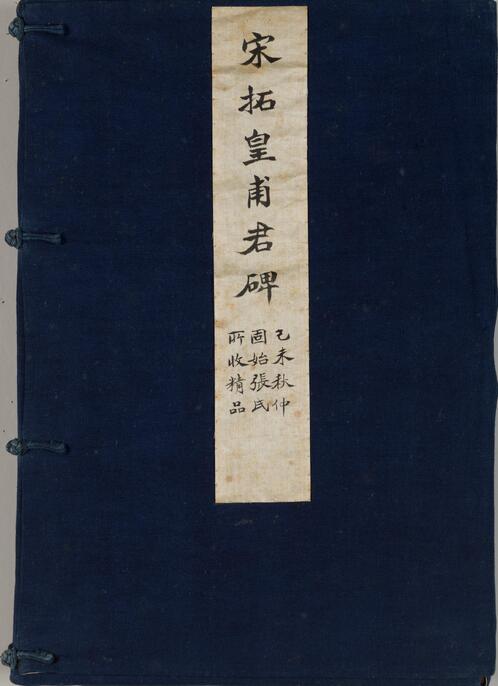 宋拓皇甫君碑
己未秋仲
固始張氏
所收精品